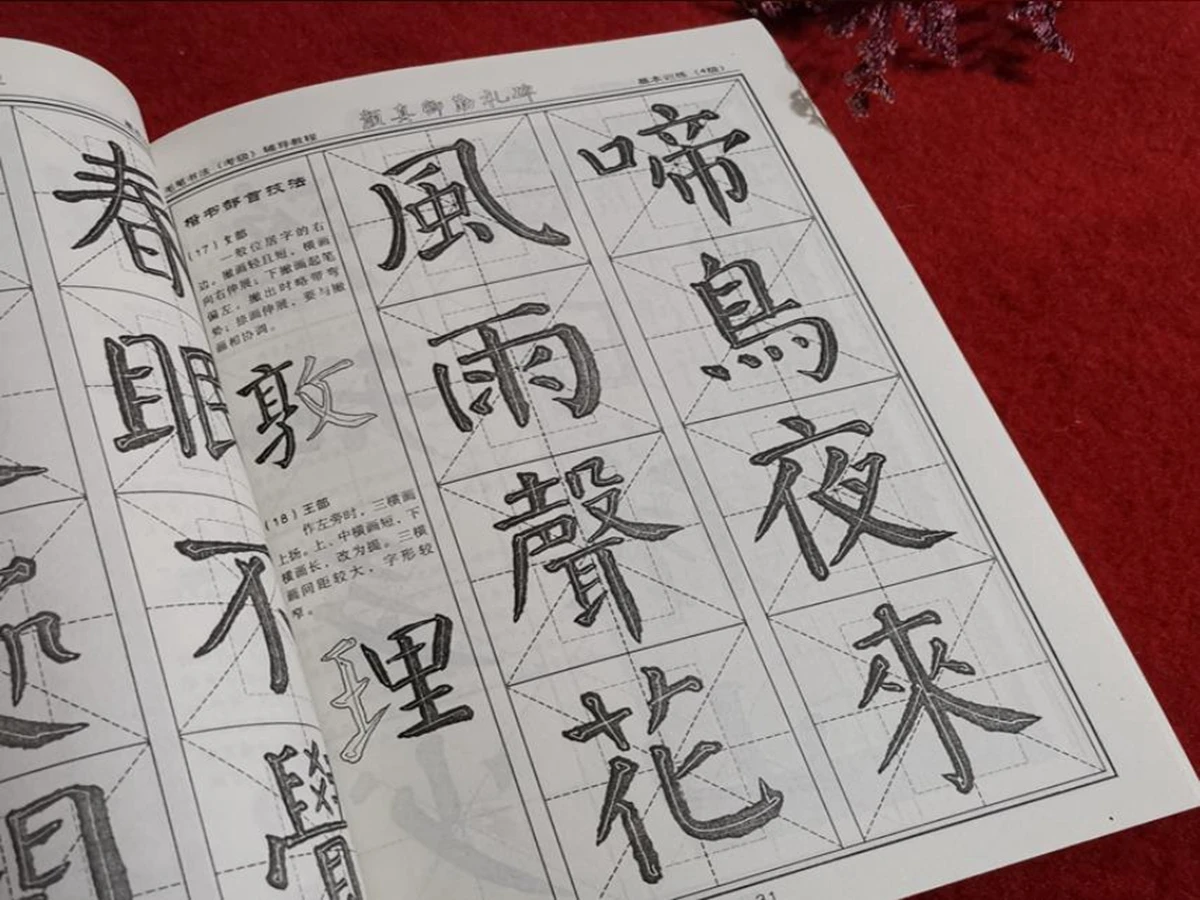 毛笔书法《考级》辅导教程
颜真卿勤礼碑
基本训练（4级）
春
眠
不
覺
楷书部首技法
（17）攵部
一般位居字的右
边，撇画轻且短，横画
向右伸展；下撇画起笔
偏左，撇出时略带弯
势；捺画伸展，要与撇
画相协调。
敦
（18）王部
作左旁时，三横画
上扬。上、中横画短，下
横画长，改为提。三横
画间距较大，字形较
窄。
理
啼
鳥
夜
來
風
雨
聲
花